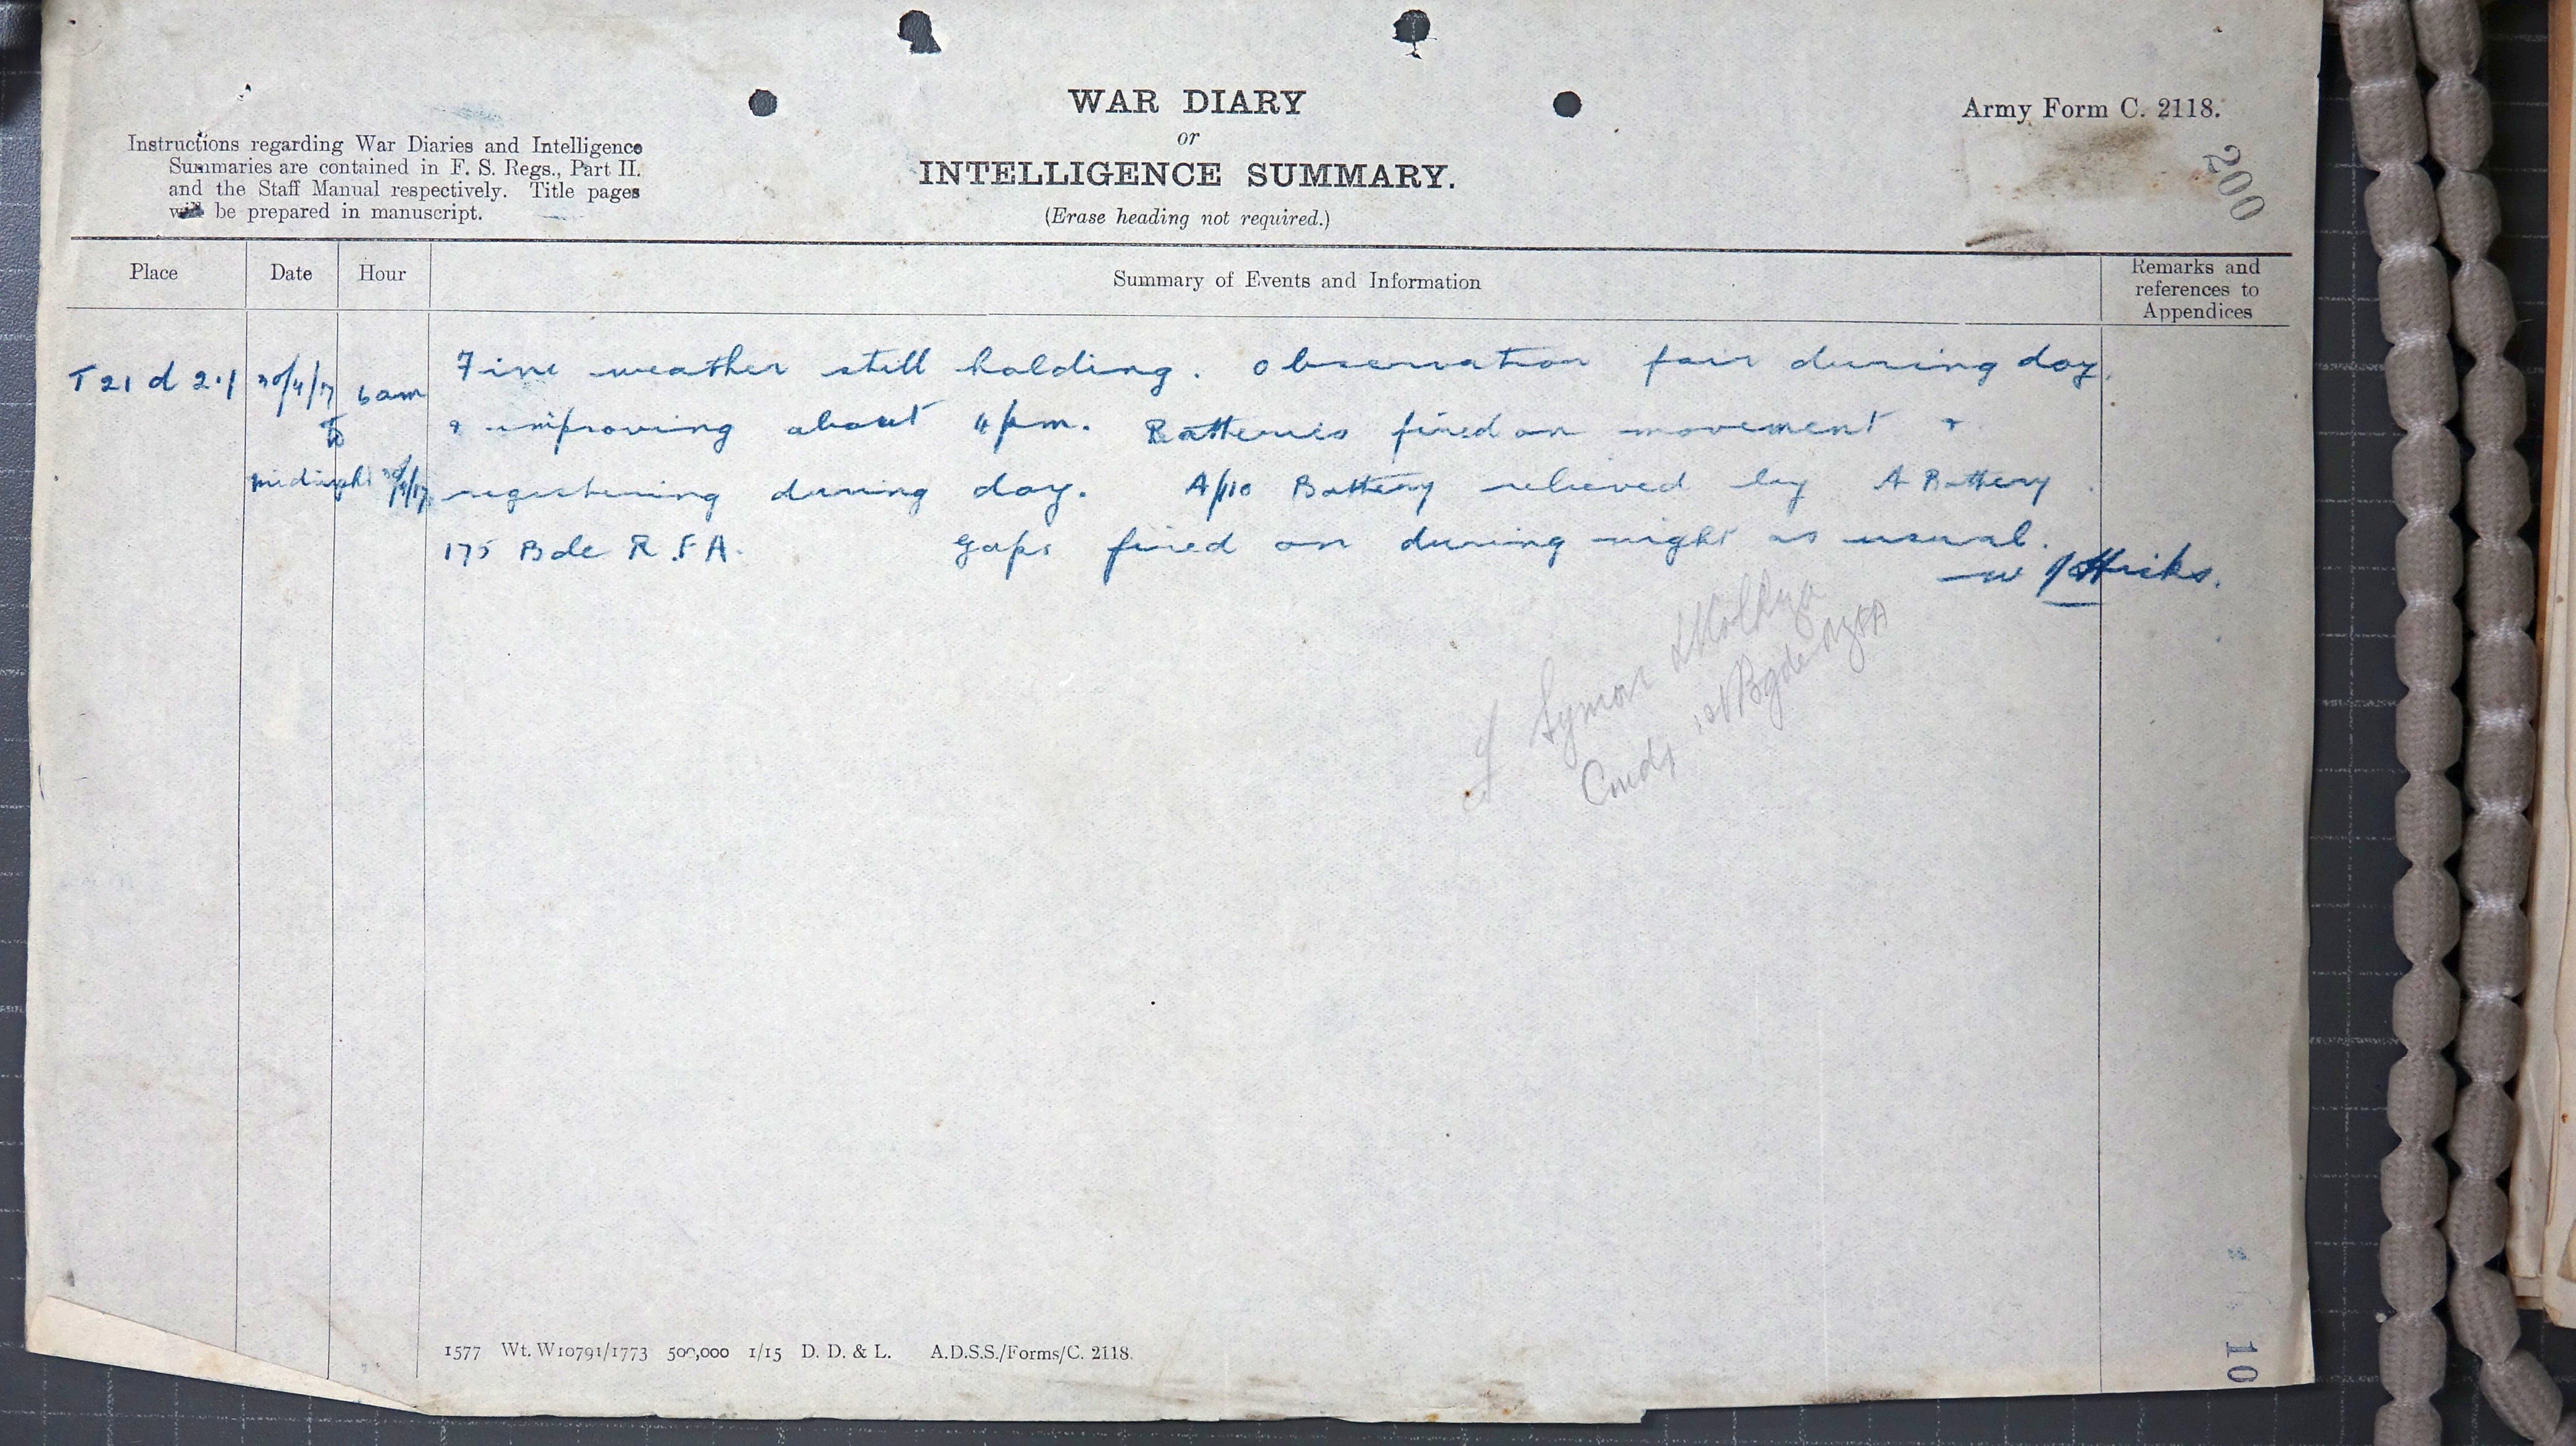 WAR DIARY
or
INTELLIGENCE SUMMARY.
(Erase heading not required.)
Army Form C. 2118.
200
Instructions regarding War Diaries and Intelligence
Summaries are contained in F. S. Regs., Part II.
and the Staff Manual respectively. Title pages
will be prepared in manuscript.
Place Date Hour Summary of Events and Information Remarks and
references to
Appendices
T 21 d 2.1 30/4/17 6 am Fine weather still holding. Observation fair during day
to & improving about 4 pm. Batteries fired on movement &
midnight 30/4/17 registering during day. A/110 Battery relieved by A Battery
175 Bde R.F.A. Gaps fired on during night as usual.
Hicks.
Symon
Cmdg 1st Bgde NZFA
1577 Wt. W10791/1773 500,000 1/15 D. D. & L. A.D.S.S./Forms/C. 2118.
10